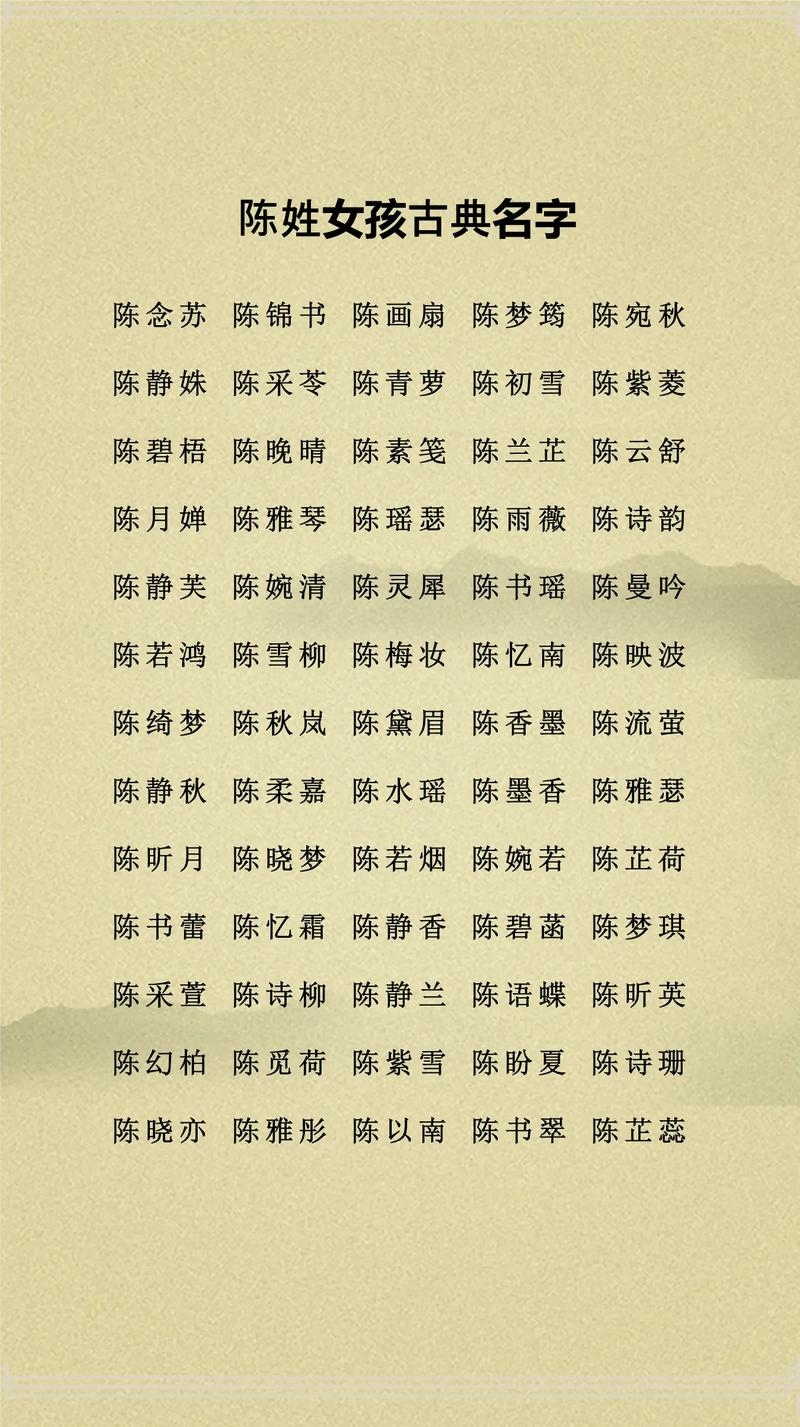 陈姓女孩古典名字
陈念苏 陈锦书 陈画扇 陈梦筠 陈宛秋
陈静姝 陈采苓 陈青萝 陈初雪 陈紫菱
陈碧梧 陈晚晴 陈素笺 陈兰芷 陈云舒
陈月婵 陈雅琴 陈瑶瑟 陈雨薇 陈诗韵
陈静芙 陈婉清 陈灵犀 陈书瑶 陈曼吟
陈若鸿 陈雪柳 陈梅妆 陈忆南 陈映波
陈绮梦 陈秋岚 陈黛眉 陈香墨 陈流萤
陈静秋 陈柔嘉 陈水瑶 陈墨香 陈雅瑟
陈昕月 陈晓梦 陈若烟 陈婉若 陈芷荷
陈书蕾 陈忆霜 陈静香 陈碧菡 陈梦琪
陈采萱 陈诗柳 陈静兰 陈语蝶 陈昕英
陈幻柏 陈觅荷 陈紫雪 陈盼夏 陈诗珊
陈晓亦 陈雅彤 陈以南 陈书翠 陈芷蕊